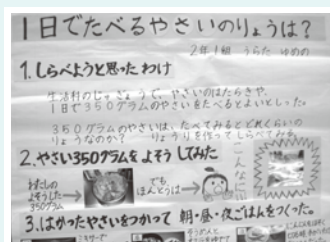 1日でたべるやさいのりょうは？
2年1組 うらた ゆめの
1.しらべようと思ったわけ
生活村のじゅぎょうで、やさいのはたらきや、
1日で350グラムのやさいをたべるとよいとしった。
350グラムのやさいは、たべてみるとどれくらいの
りょうなのか？ りょうりを作ってしらべてみる。
2.やさい350グラムを よそうしてみた
わたしの
よそうした
350グラム
でも
ほんとうは
こんなに!!!
3.はかったやさいをつかって 朝・昼・夜ごはんをつくった。